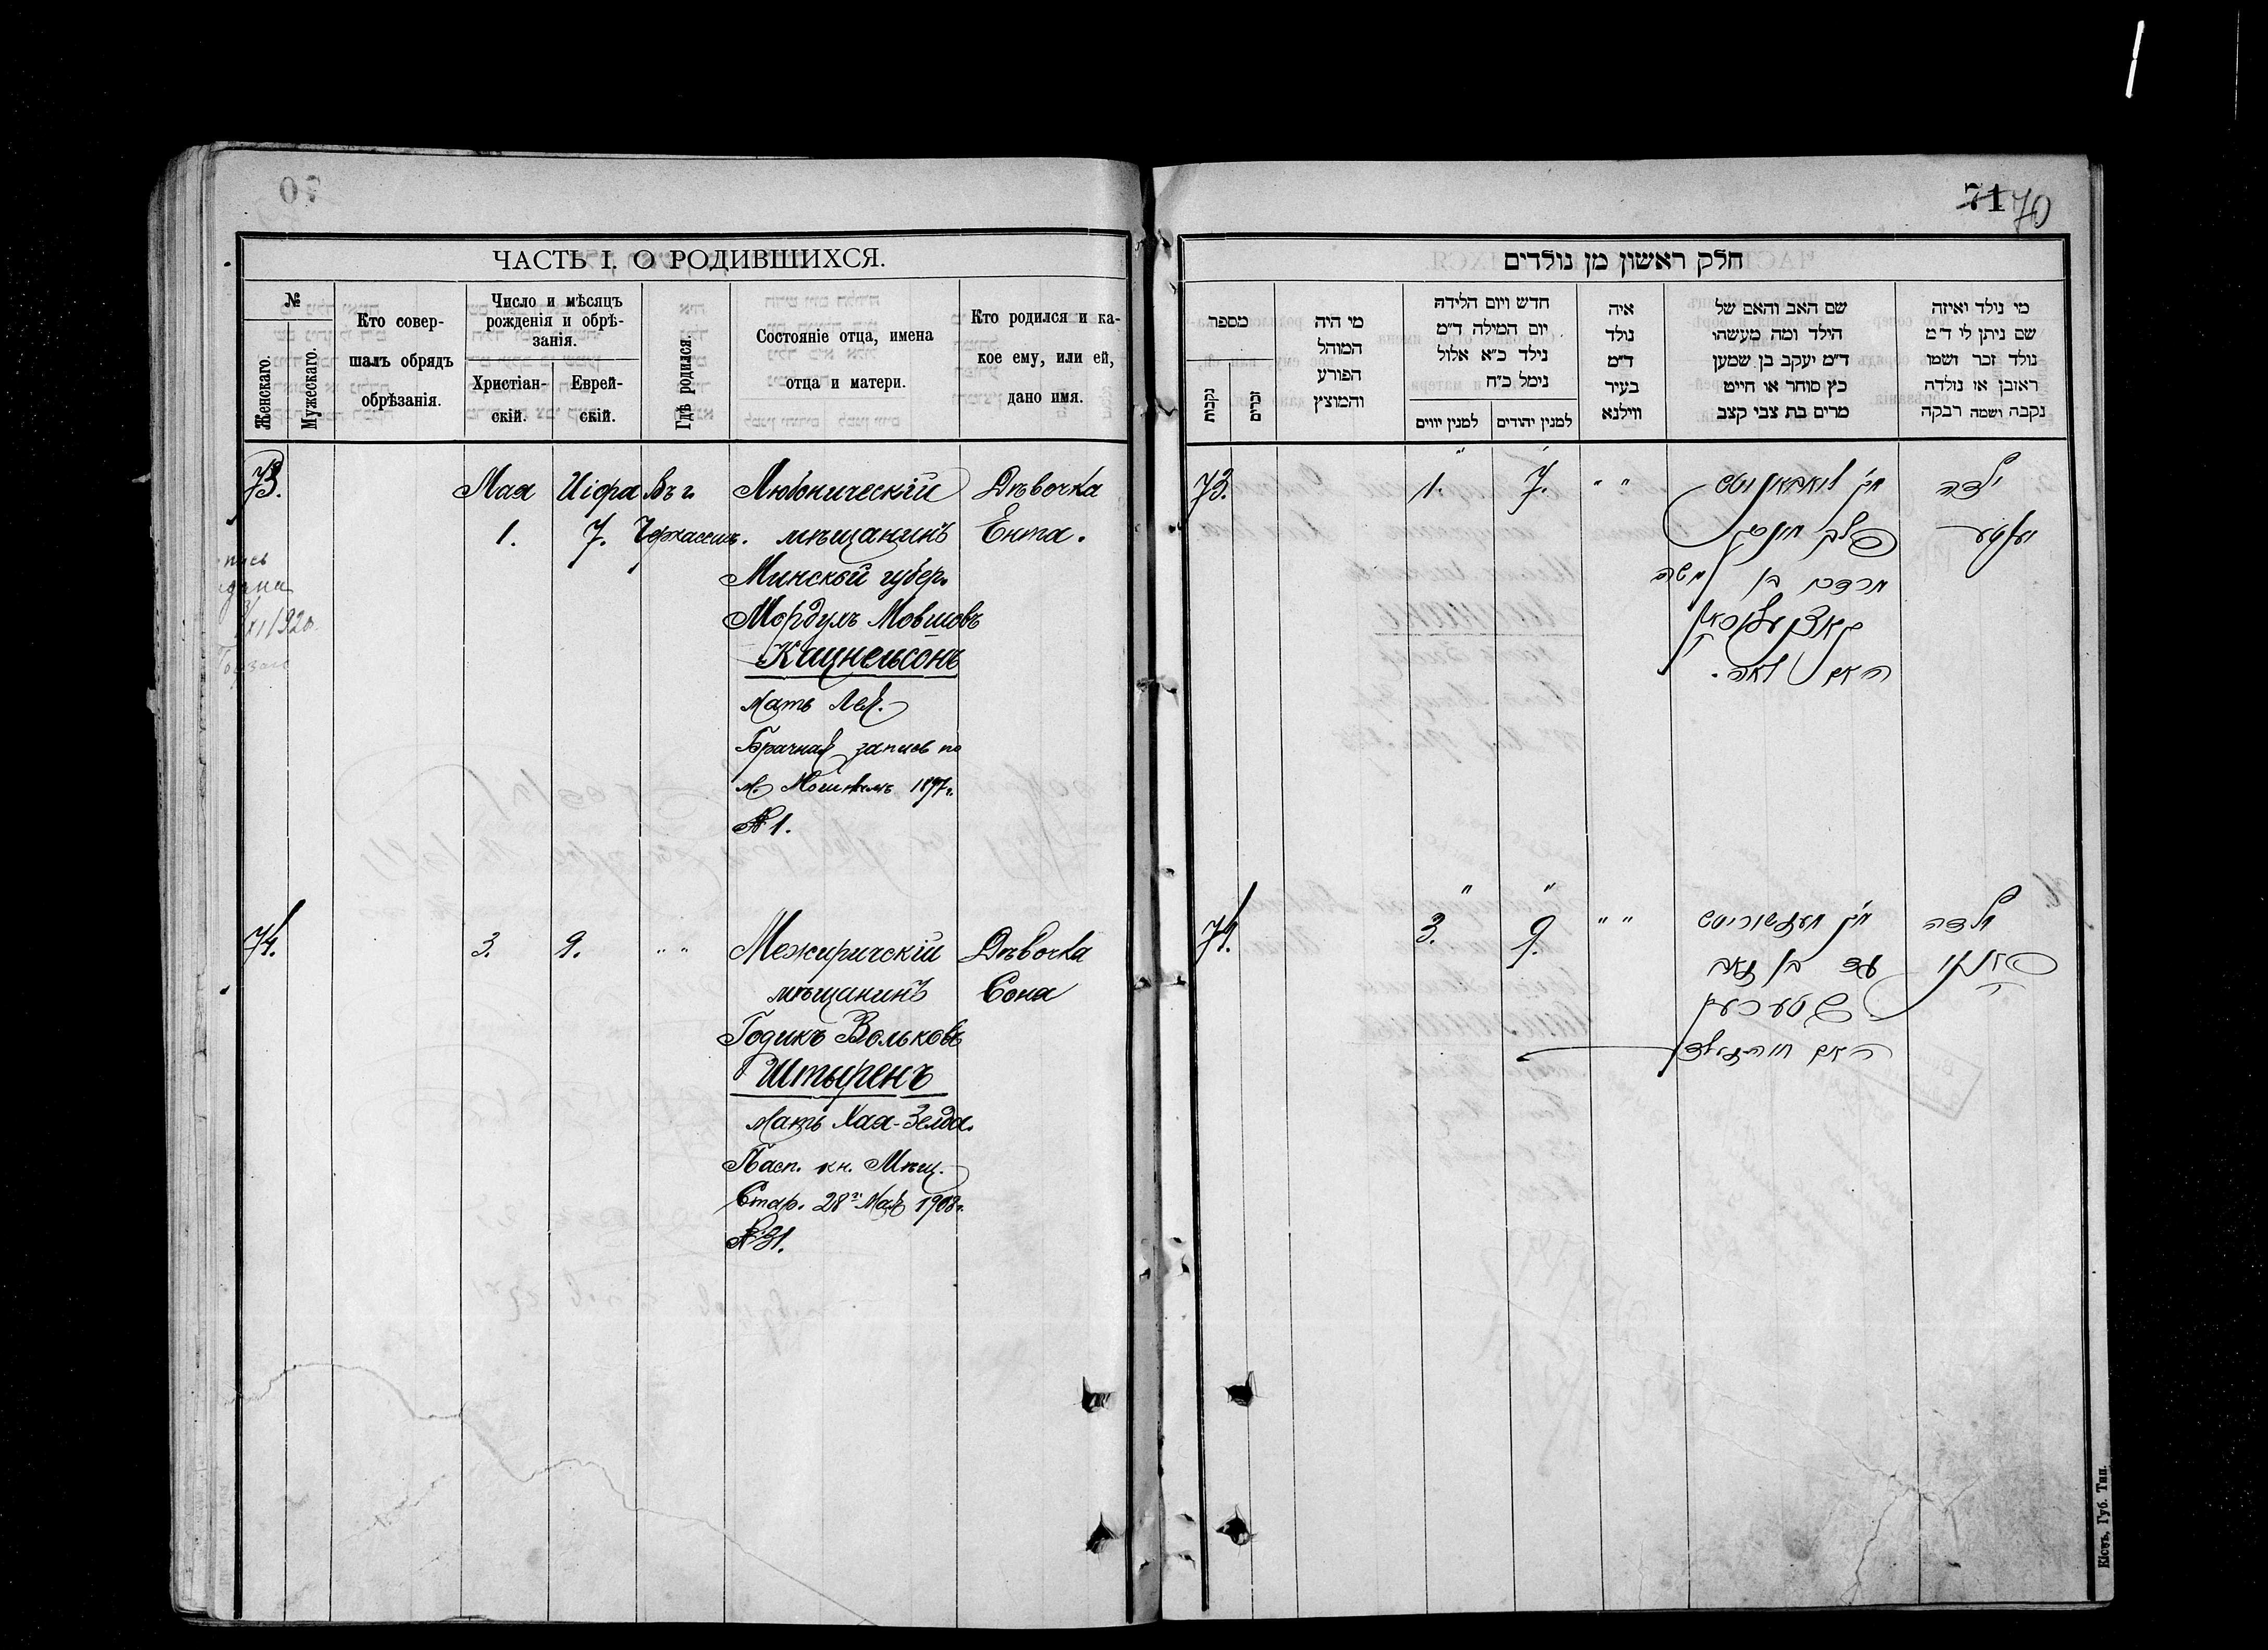 71 70
ЧАСТЬ I. О РОДИВШИХСЯ.
№
Женскаго.
Мужескаго.
Кто совер-
шалъ обрядъ
обрѣзанія.
Число и мѣсяцъ
рожденія и обрѣ-
занія.
Христіан-
скій.
Еврей-
скій.
Гдѣ родился.
Состояніе отца, имена
отца и матери.
Кто родился и ка-
кое ему, или ей,
дано имя.
73. Мая Иіора Въ г. Любоничскій Дѣвочка
1. 7. Черкассахъ. мѣщанинъ Ента.
Минской губер.
Мордухъ Мовшовъ
Кацнельсонъ
мать Лея.
Брачная запись по
1897 г.
№ 1.
74. 3. 9. " " Межиричскій Дѣвочка
мѣщанинъ Соня
Годикъ Вольковъ
Штыренъ
мать Хая-Зелда.
Пасп. кн. Мѣщ.
Стар. 28го Мая 1908 г.
№ 31.
חלק ראשון מן נולדים
מספר
נקבות
זכרים
מי היה
המוהל
הפורע
והמוצץ
חדש ויום הלידה
יום המילה ד״מ
נילד כ״א אלול
נימל כ״ח
למנין יווים
למנין יהודים
איה
נולד
ד״מ
בעיר
ווילנא
שם האב והאם של
הילד ומה מעשהו
ד״מ יעקב בן שמען
כץ סוחר או חייט
מרים בת צבי קצב
מי נולד ואיזה
שם ניתן לו ד״מ
נולד זכר ושמו
ראובן או נולדה
נקבה ושמה רבקה
73. 1. 7. " "
ילדה
יענטע
מרדכי בן משה
קאצנעלסאן
האם לאה.
74. 3. 9. " "
ילדה
האם חיה זעלדע
Кіевъ, Губ. Тип.